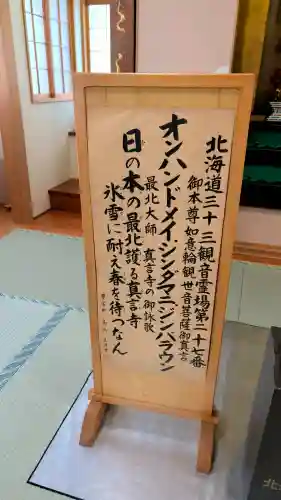 北海道三十三観音霊場第二十七番
御本尊如意輪観世音菩薩御真言
オンハンドメイ・シンダマニジンバラウン
最北大師 真言寺の御詠歌
日の本の最北護る真言寺
氷雪に耐え春を待つなん